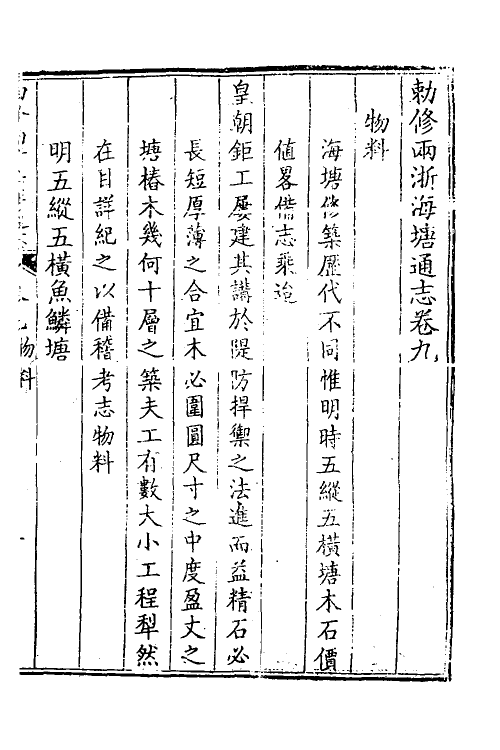 勅修兩浙海塘通志卷九
物料
海塘修築歷代不同惟明時五縱五橫塘木石價
值畧備志乘迨
皇朝鉅工屢建其講於隄防捍禦之法進而益精石必
長短厚薄之合宜木必圍圓尺寸之中度盈丈之
塘樁木幾何十層之築夫工有數大小工程犁然
在目詳紀之以備稽考志物料
明五縱五橫魚鱗塘
物料